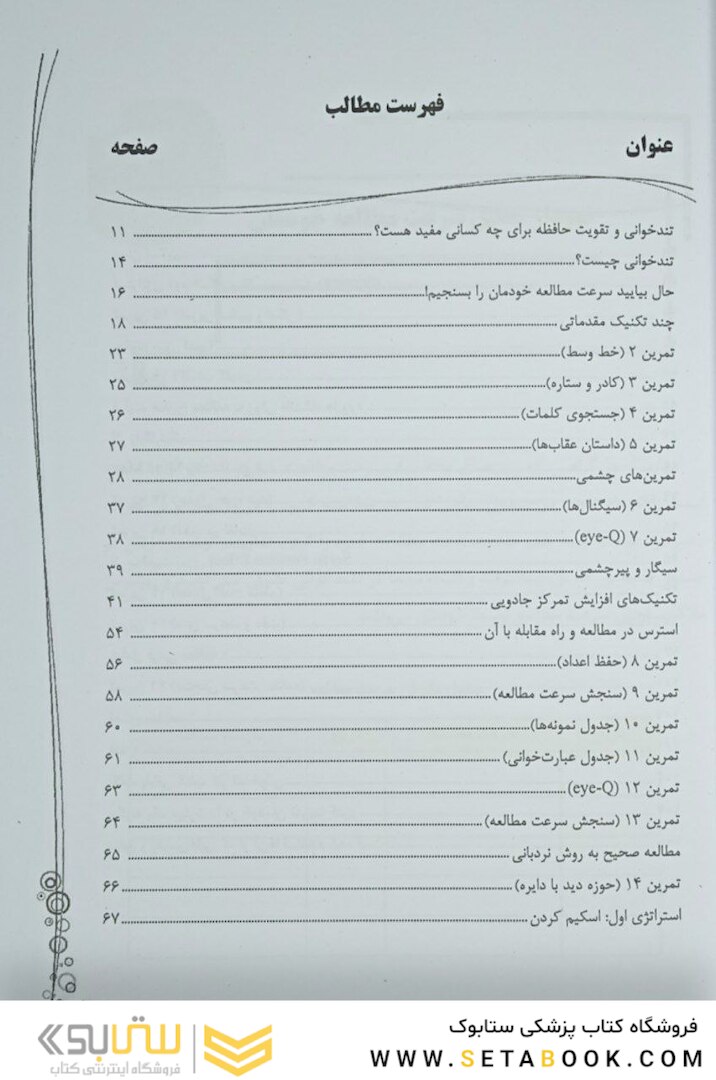 فهرست مطالب
عنوان صفحه
تندخوانی و تقویت حافظه برای چه کسانی مفید هست؟ ۱۱
تندخوانی چیست؟ ۱۴
حال بیایید سرعت مطالعه خودمان را بسنجیم! ۱۶
چند تکنیک مقدماتی ۱۸
تمرین ۲ (خط وسط) ۲۳
تمرین ۳ (کادر و ستاره) ۲۵
تمرین ۴ (جستجوی کلمات) ۲۶
تمرین ۵ (داستان عقاب‌ها) ۲۷
تمرین‌های چشمی ۲۸
تمرین ۶ (سیگنال‌ها) ۳۷
تمرین ۷ (eye-Q) ۳۸
سیگار و پیرچشمی ۳۹
تکنیک‌های افزایش تمرکز جادویی ۴۱
استرس در مطالعه و راه مقابله با آن ۵۴
تمرین ۸ (حفظ اعداد) ۵۶
تمرین ۹ (سنجش سرعت مطالعه) ۵۸
تمرین ۱۰ (جدول نمونه‌ها) ۶۰
تمرین ۱۱ (جدول عبارت‌خوانی) ۶۱
تمرین ۱۲ (eye-Q) ۶۳
تمرین ۱۳ (سنجش سرعت مطالعه) ۶۴
مطالعه صحیح به روش نردبانی ۶۵
تمرین ۱۴ (حوزه دید با دایره) ۶۶
استراتژی اول: اسکیم کردن ۶۷
فروشگاه کتاب پزشکی ستابوک
WWW.SETABOOK.COM
ستابوک
فروشگاه اینترنتی کتاب